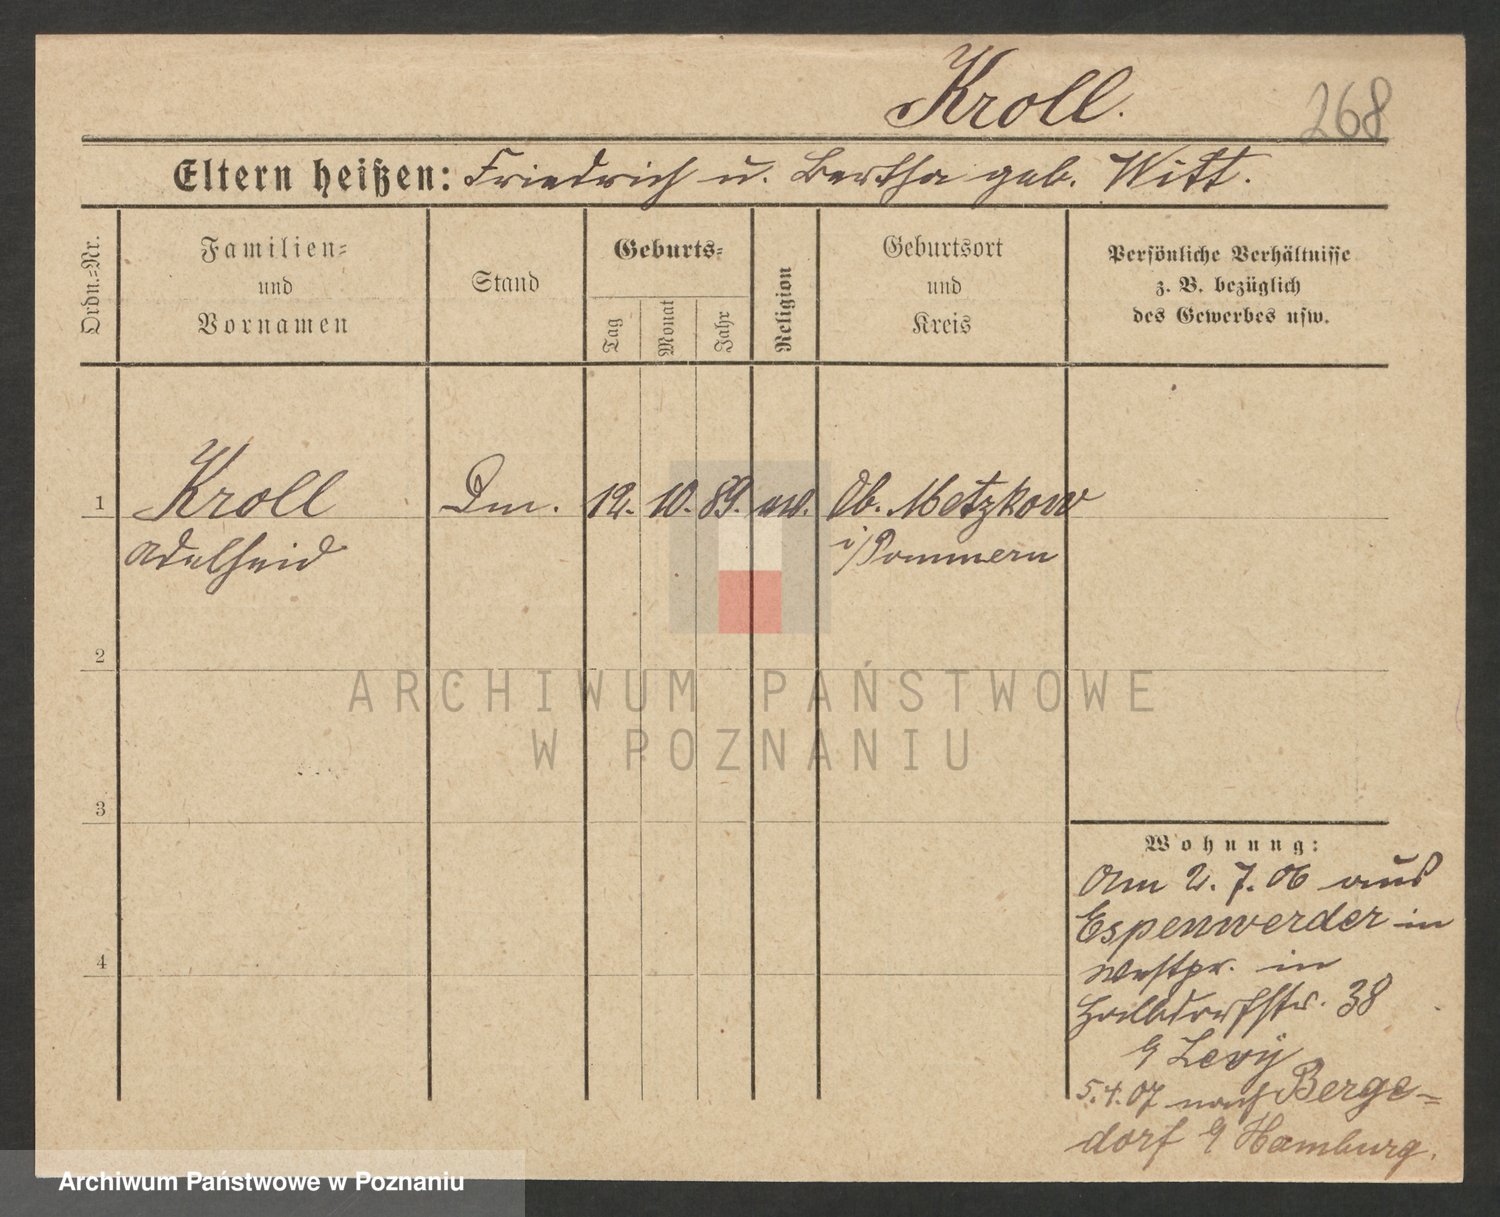 Kroll.
268
Eltern heißen: Friedrich u. Bertha geb. Witt.
Ordn.=Nr.
Familien=
und
Vornamen
Stand
Geburts=
Tag
Monat
Jahr
Religion
Geburtsort
und
Kreis
Persönliche Verhältnisse
z. B. bezüglich
des Gewerbes usw.
1
Kroll
Adelheid
Dm.
12. 10. 89.
ev.
Ob. Metzkow
i/Pommern
2
3
4
ARCHIWUM PAŃSTWOWE
W POZNANIU
Wohnung:
Am 2. 7. 06 aus
Espenwerder in
Westpr. in
38
Levÿ
5.4.07 nach Berge=
dorf Hamburg.
Archiwum Państwowe w Poznaniu